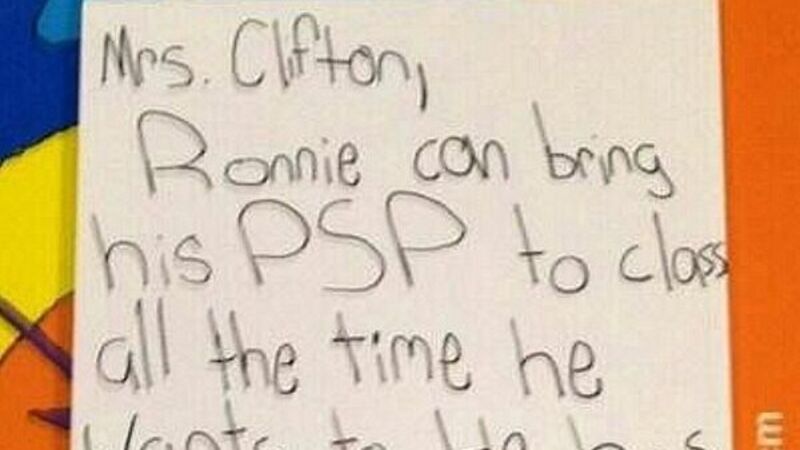 Mrs. Clifton,
Ronnie can bring
his PSP to class
all the time he
wants to. He has